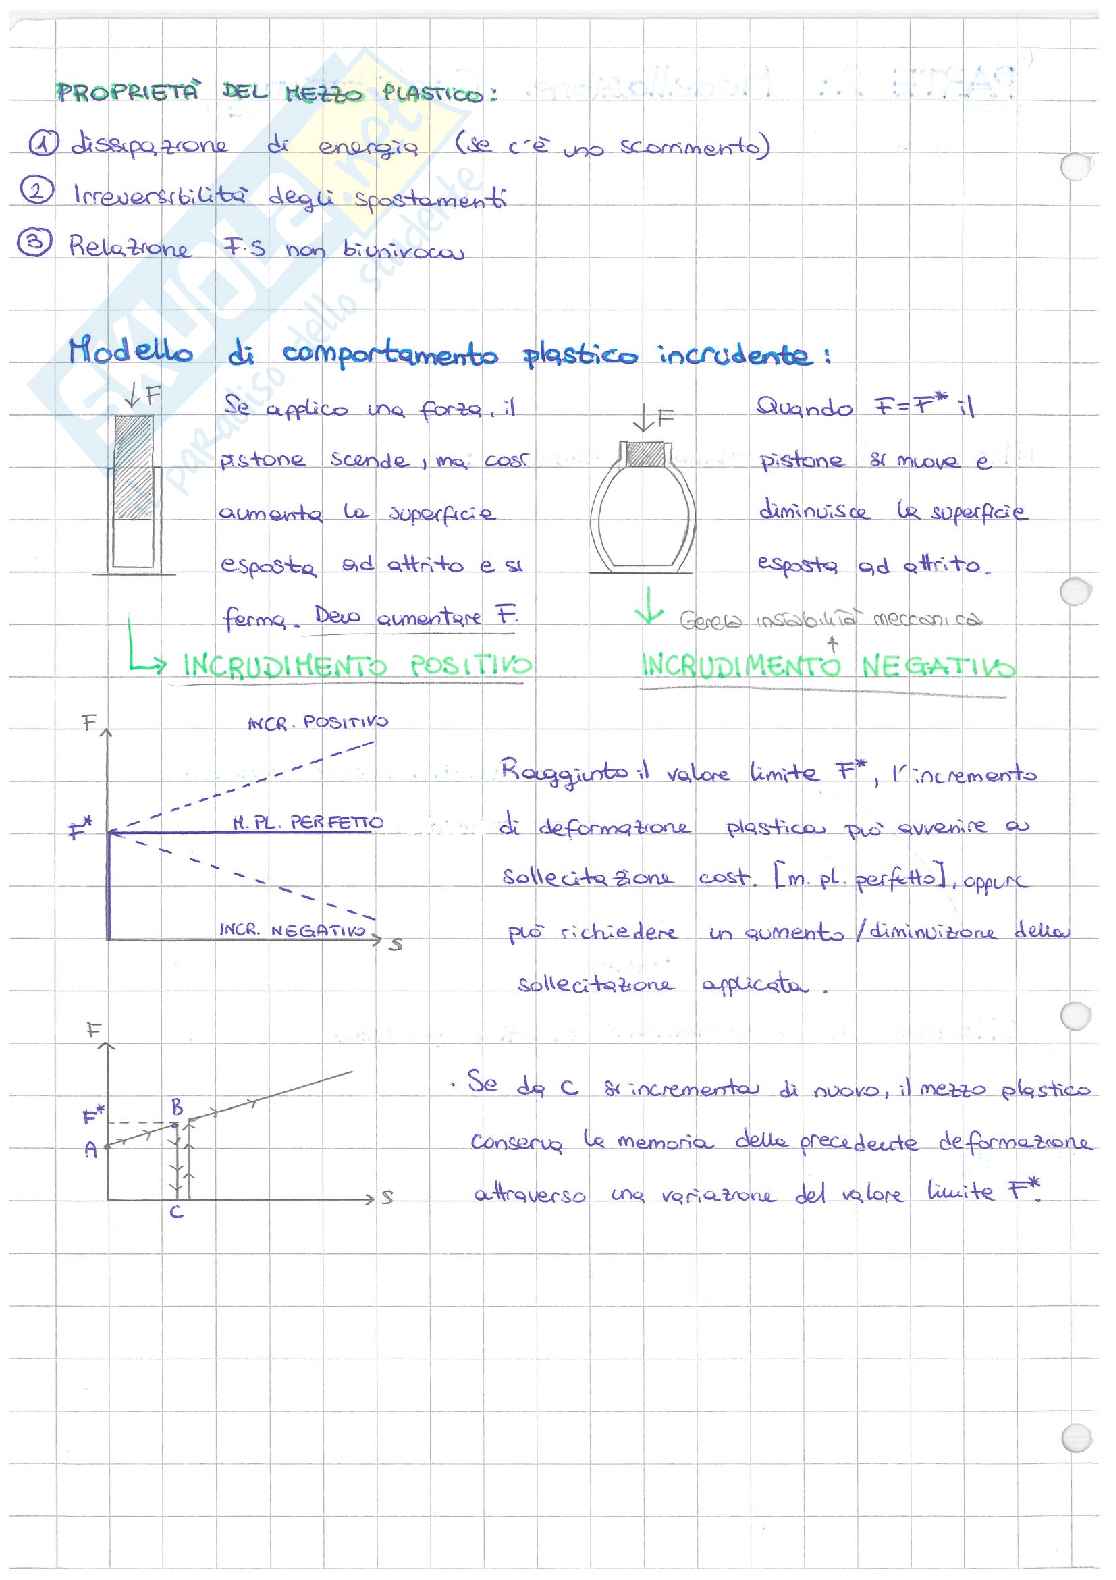 PROPRIETÀ DEL MEZZO PLASTICO:
① dissipazione di energia (se c'è uno scorrimento)
② Irreversibilità degli spostamenti
③ Relazione F-S non biunivoca
Modello di comportamento plastico incrudente:
F
Se applico una forza, il
pistone scende, ma così
aumenta la superficie
esposta ad attrito e si
ferma. Devo aumentare F.
INCRUDIMENTO POSITIVO
F
Quando F=F* il
pistone si muove e
diminuisce la superficie
esposta ad attrito.
Genera instabilità meccanica
INCRUDIMENTO NEGATIVO
F
INCR. POSITIVO
F*
M. PL. PERFETTO
INCR. NEGATIVO
S
Raggiunto il valore limite F*, l'incremento
di deformazione plastica può avvenire a
sollecitazione cost. [m. pl. perfetto], oppure
può richiedere un aumento/diminuizione della
sollecitazione applicata.
F
F*
B
A
C
S
. Se da C si incrementa di nuovo, il mezzo plastico
conserva la memoria della precedente deformazione
attraverso una variazione del valore limite F*.
SKUOLA.net
paradiso dello studente